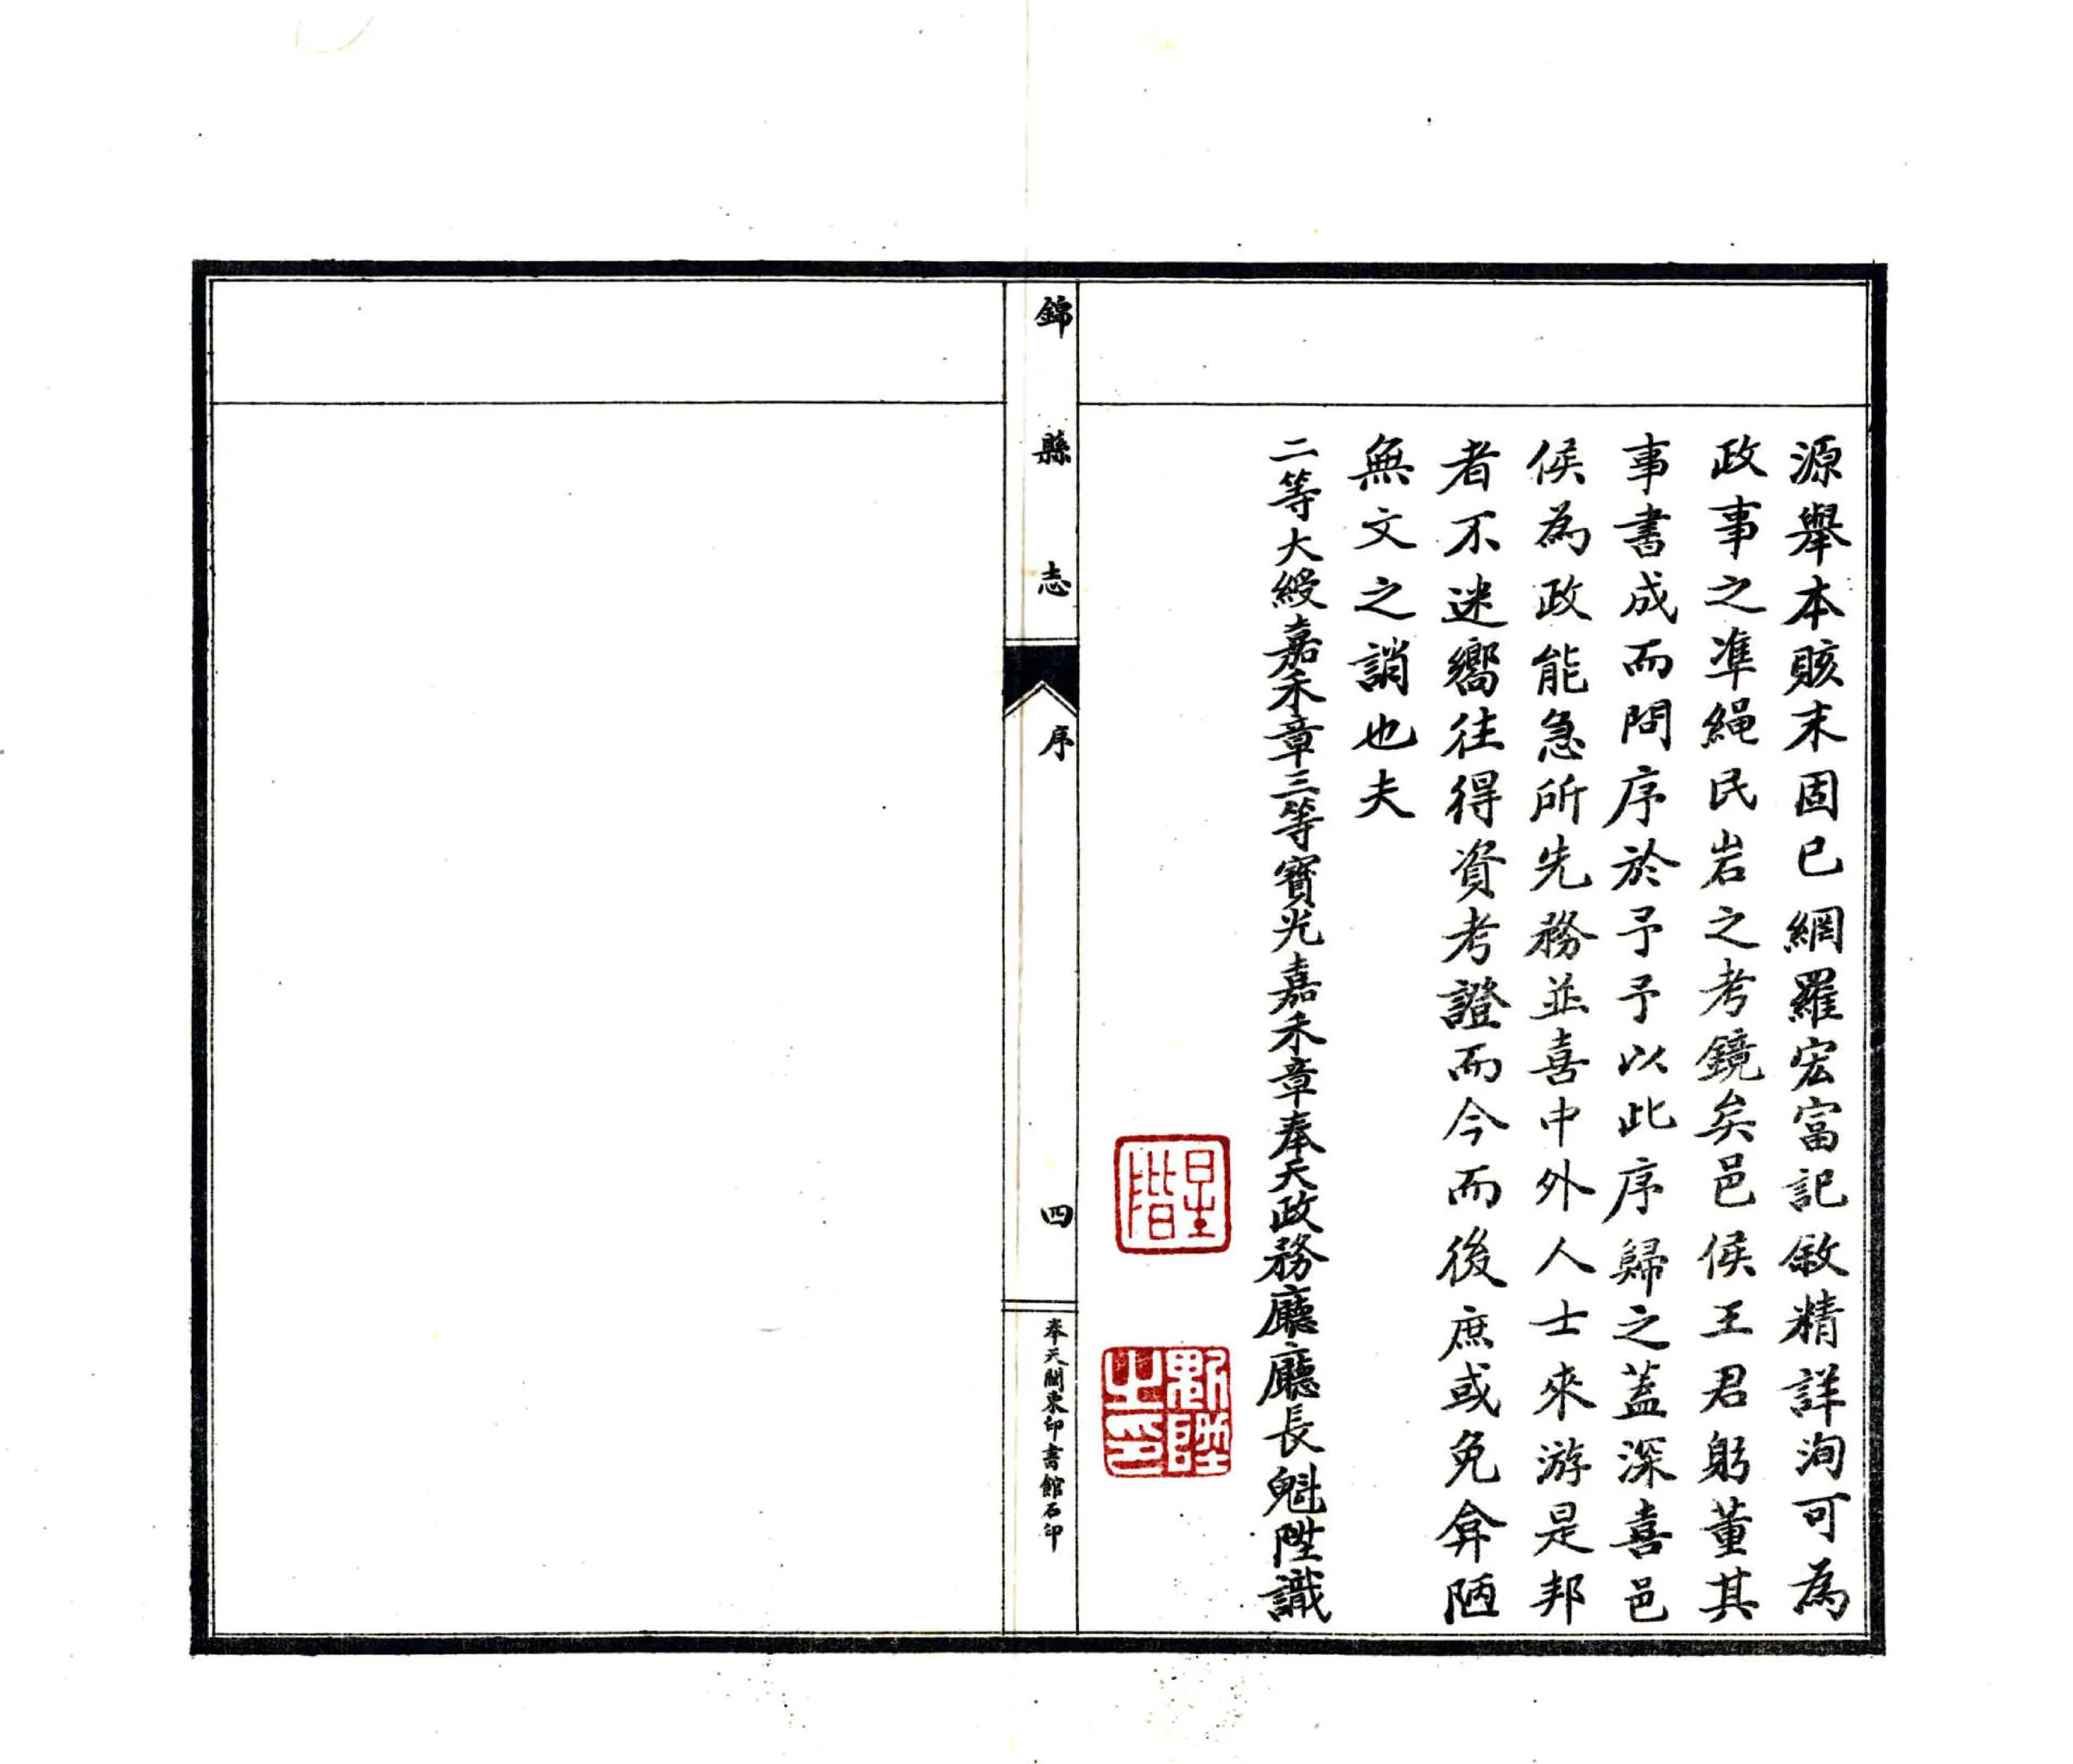 源舉本賅末固已網羅宏富記敘精詳洵可為
政事之準繩民岩之考鏡矣邑侯王君躬董其
事書成而問序於予予以此序歸之蓋深喜邑
侯為政能急所先務並喜中外人士來游是邦
者不迷嚮往得資考證而今而後庶或免弇陋
無文之誚也夫
二等大綬嘉禾章三等寶光嘉禾章奉天政務廳廳長魁陞識
星階
魁陞之印
錦縣志
序
四
奉天關東印書館石印